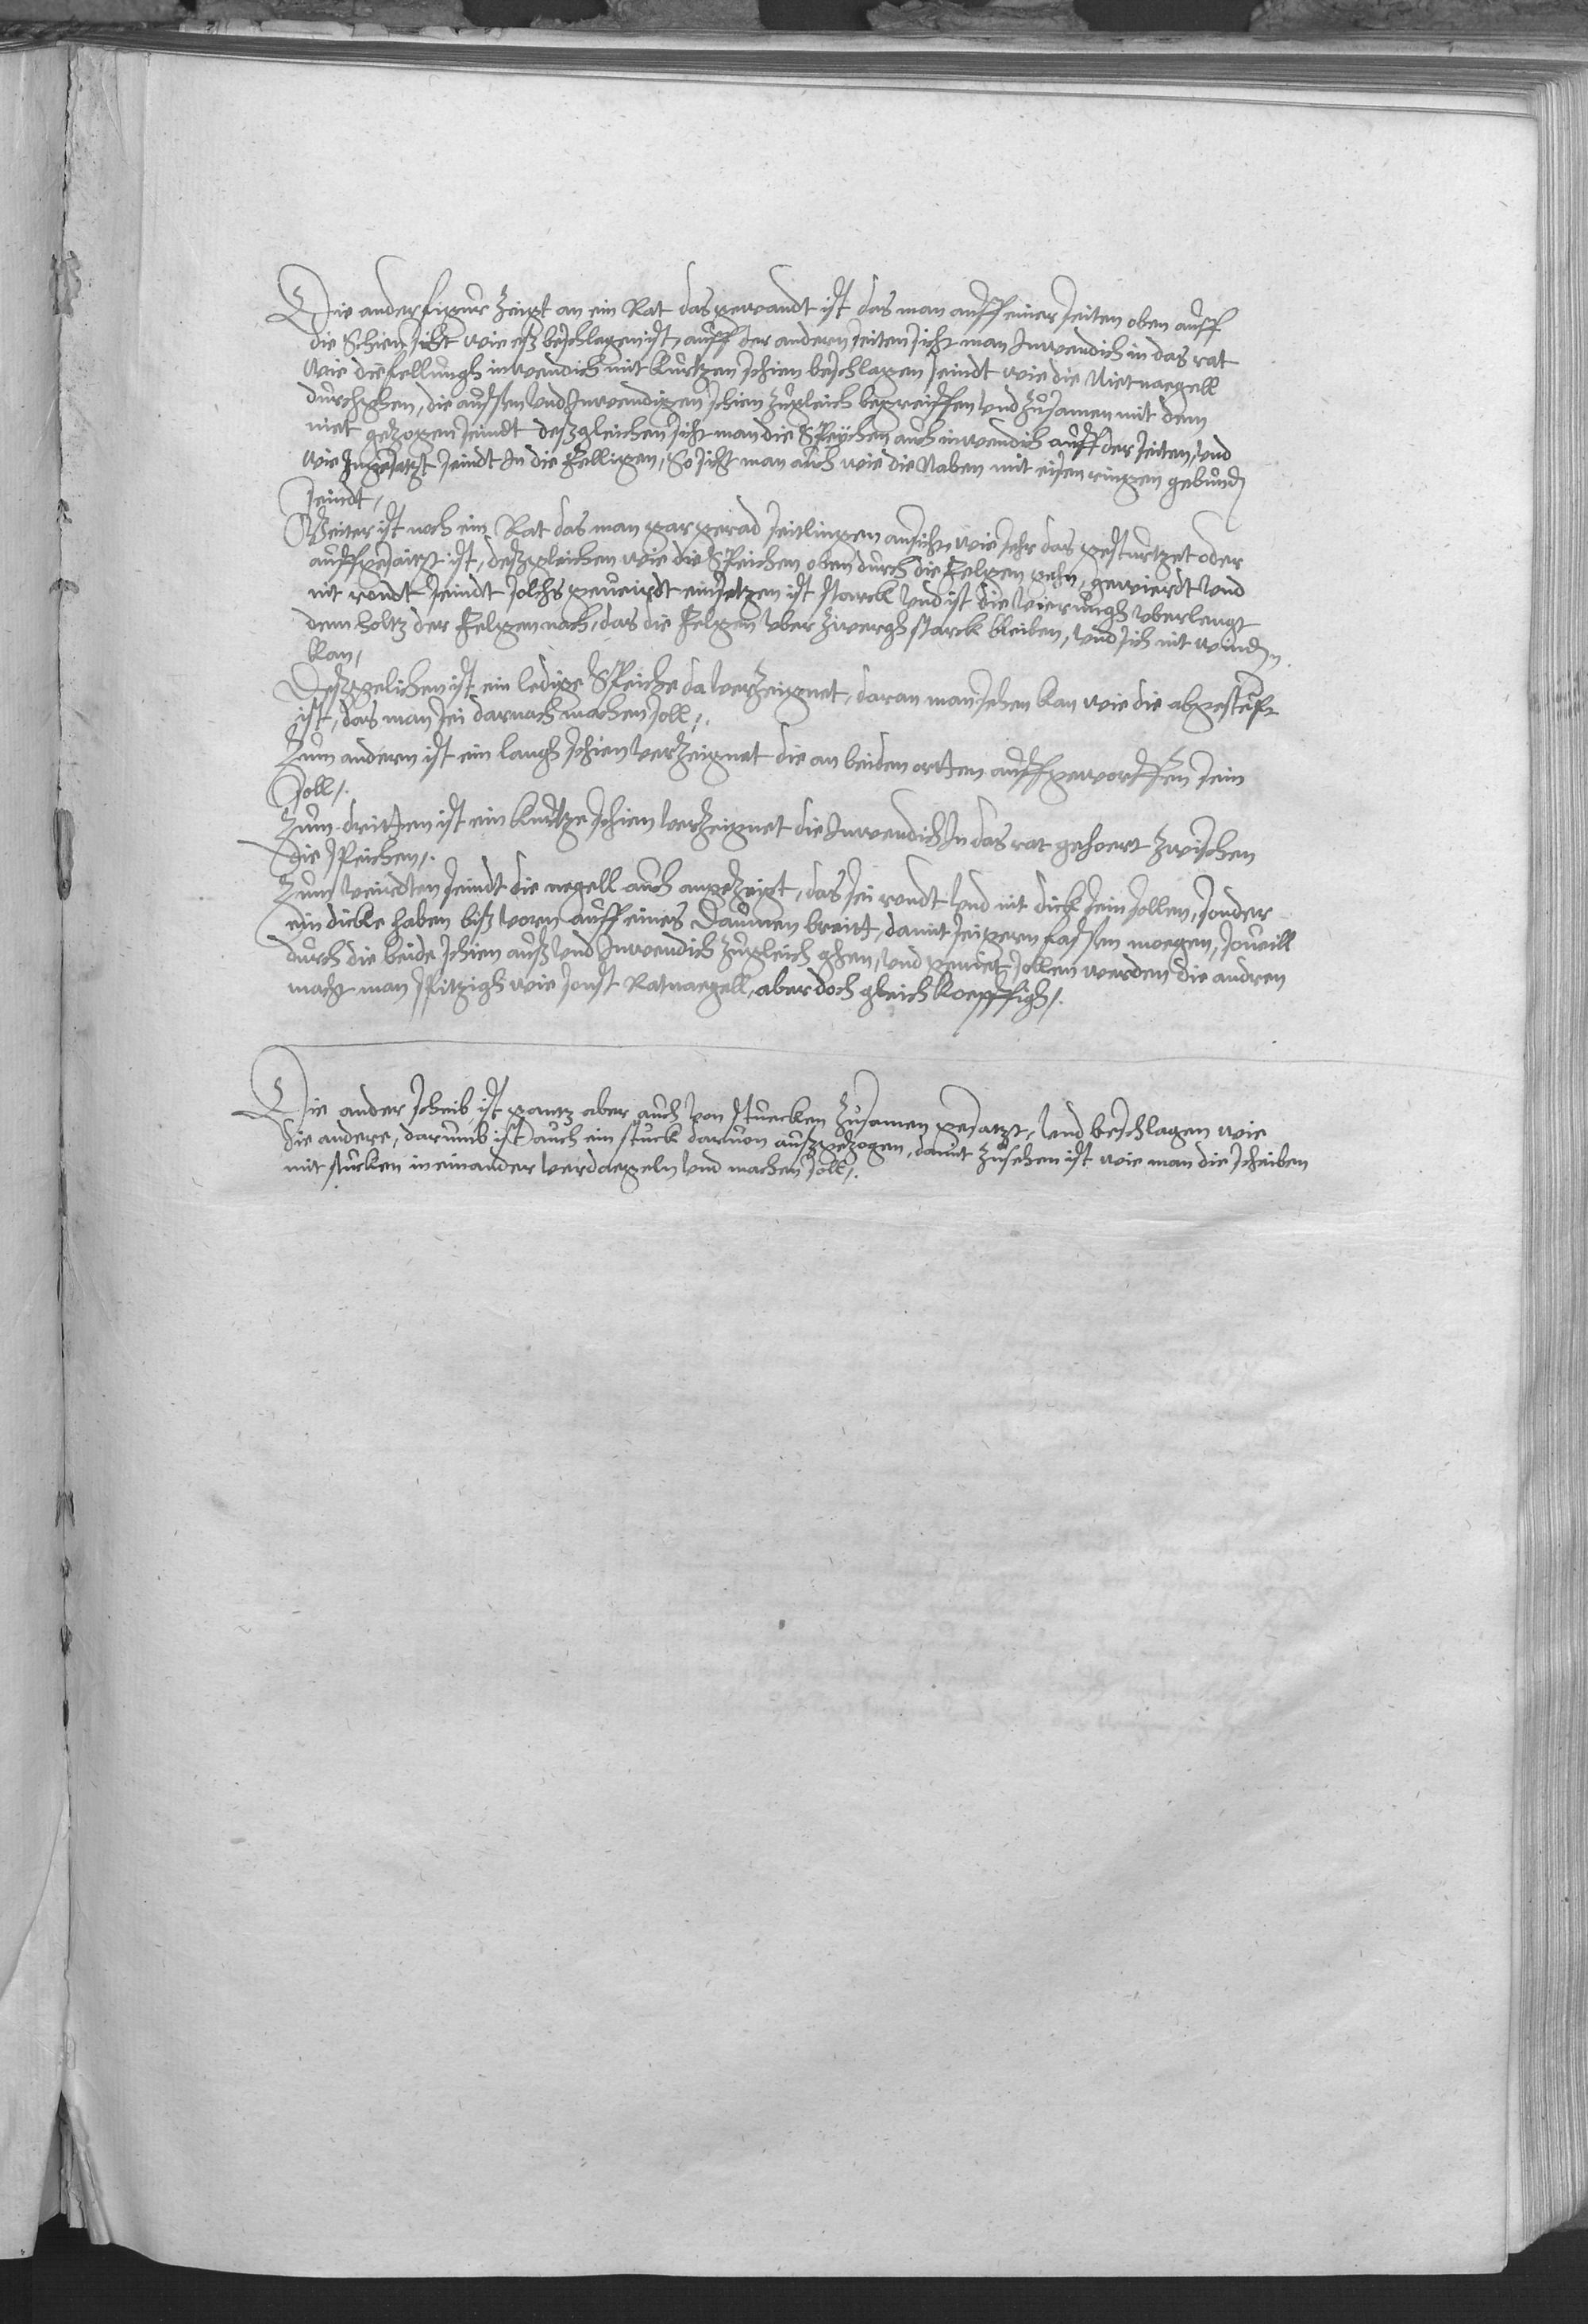 Die ander figur zeigt an ein Rat das gewandt ist das man auff einer seiten oben auff
die Schien sicht wie eß beschlagen ist, auff der andern seiten sicht man Inwendich in das rat
wie die fellungh inwendich mit kurtzen schien beschlagen seindt wie die Nietnaegell
durchghen, die aussen und Inwendigen schien zugleich begreiffen und zusamen mit dem
niet gezogen seindt deßgleichen sicht man die Speychen auch inwendich auff der seiten, und
wie Ingesatzt seindt In die Felligen, So sicht man auch wie die Naben mit eisen ringen gebunden
seindt,
Weiter ist noch ein Rat das man gar gerad seitlingen ansicht, wie sehr das gesturtzet oder
auffgesatzt ist, deßgleichen wie die Speichen oben durch die Felgen gehn, gevierdt und
nit rondt seindt solchs gevierdt einsetzen ist starck und ist die vierungh uberlengt
dem holtz der Felgen nach, das die Felgen uber zwergh starck bleiben, und sich nit winden
kan,
Deßgelichen ist ein ledige Speiche da verzeignet, daran man sehen kan wie die abgestufft
ist, das man sei darnach machen soll,.
Zum andern ist ein langh schien verzeignet die an beiden ortten auffgeworffen sein
soll,.
Zum dritten ist ein kurtze schien verzeignet die Inwendich In das rat gehoert zwischen
die speichen,.
Zum veirdten seindt die negell auch angezeigt, das sei rondt und nit dick sein sollen, sonder
ein dicke haben biß vorn auff eines Daumen breitt, damit sei gern fassen moegen, soveill
durch die beide schien auß und Inwendich zugleich ghen, und genidt sollen werden die andren
macht man spitzigh wie sonst Ratnaegell, aber doch gleich koepffigh,.
Die ander scheib ist gantz aber auch von stuecken zusamen gesatzt, und beschlagen wie
die andere, darumb ist auch ein stuck darvon außgezogen, damit zusehen ist wie man die scheiben
mit stucken in einander verdaegeln und machen soll,.